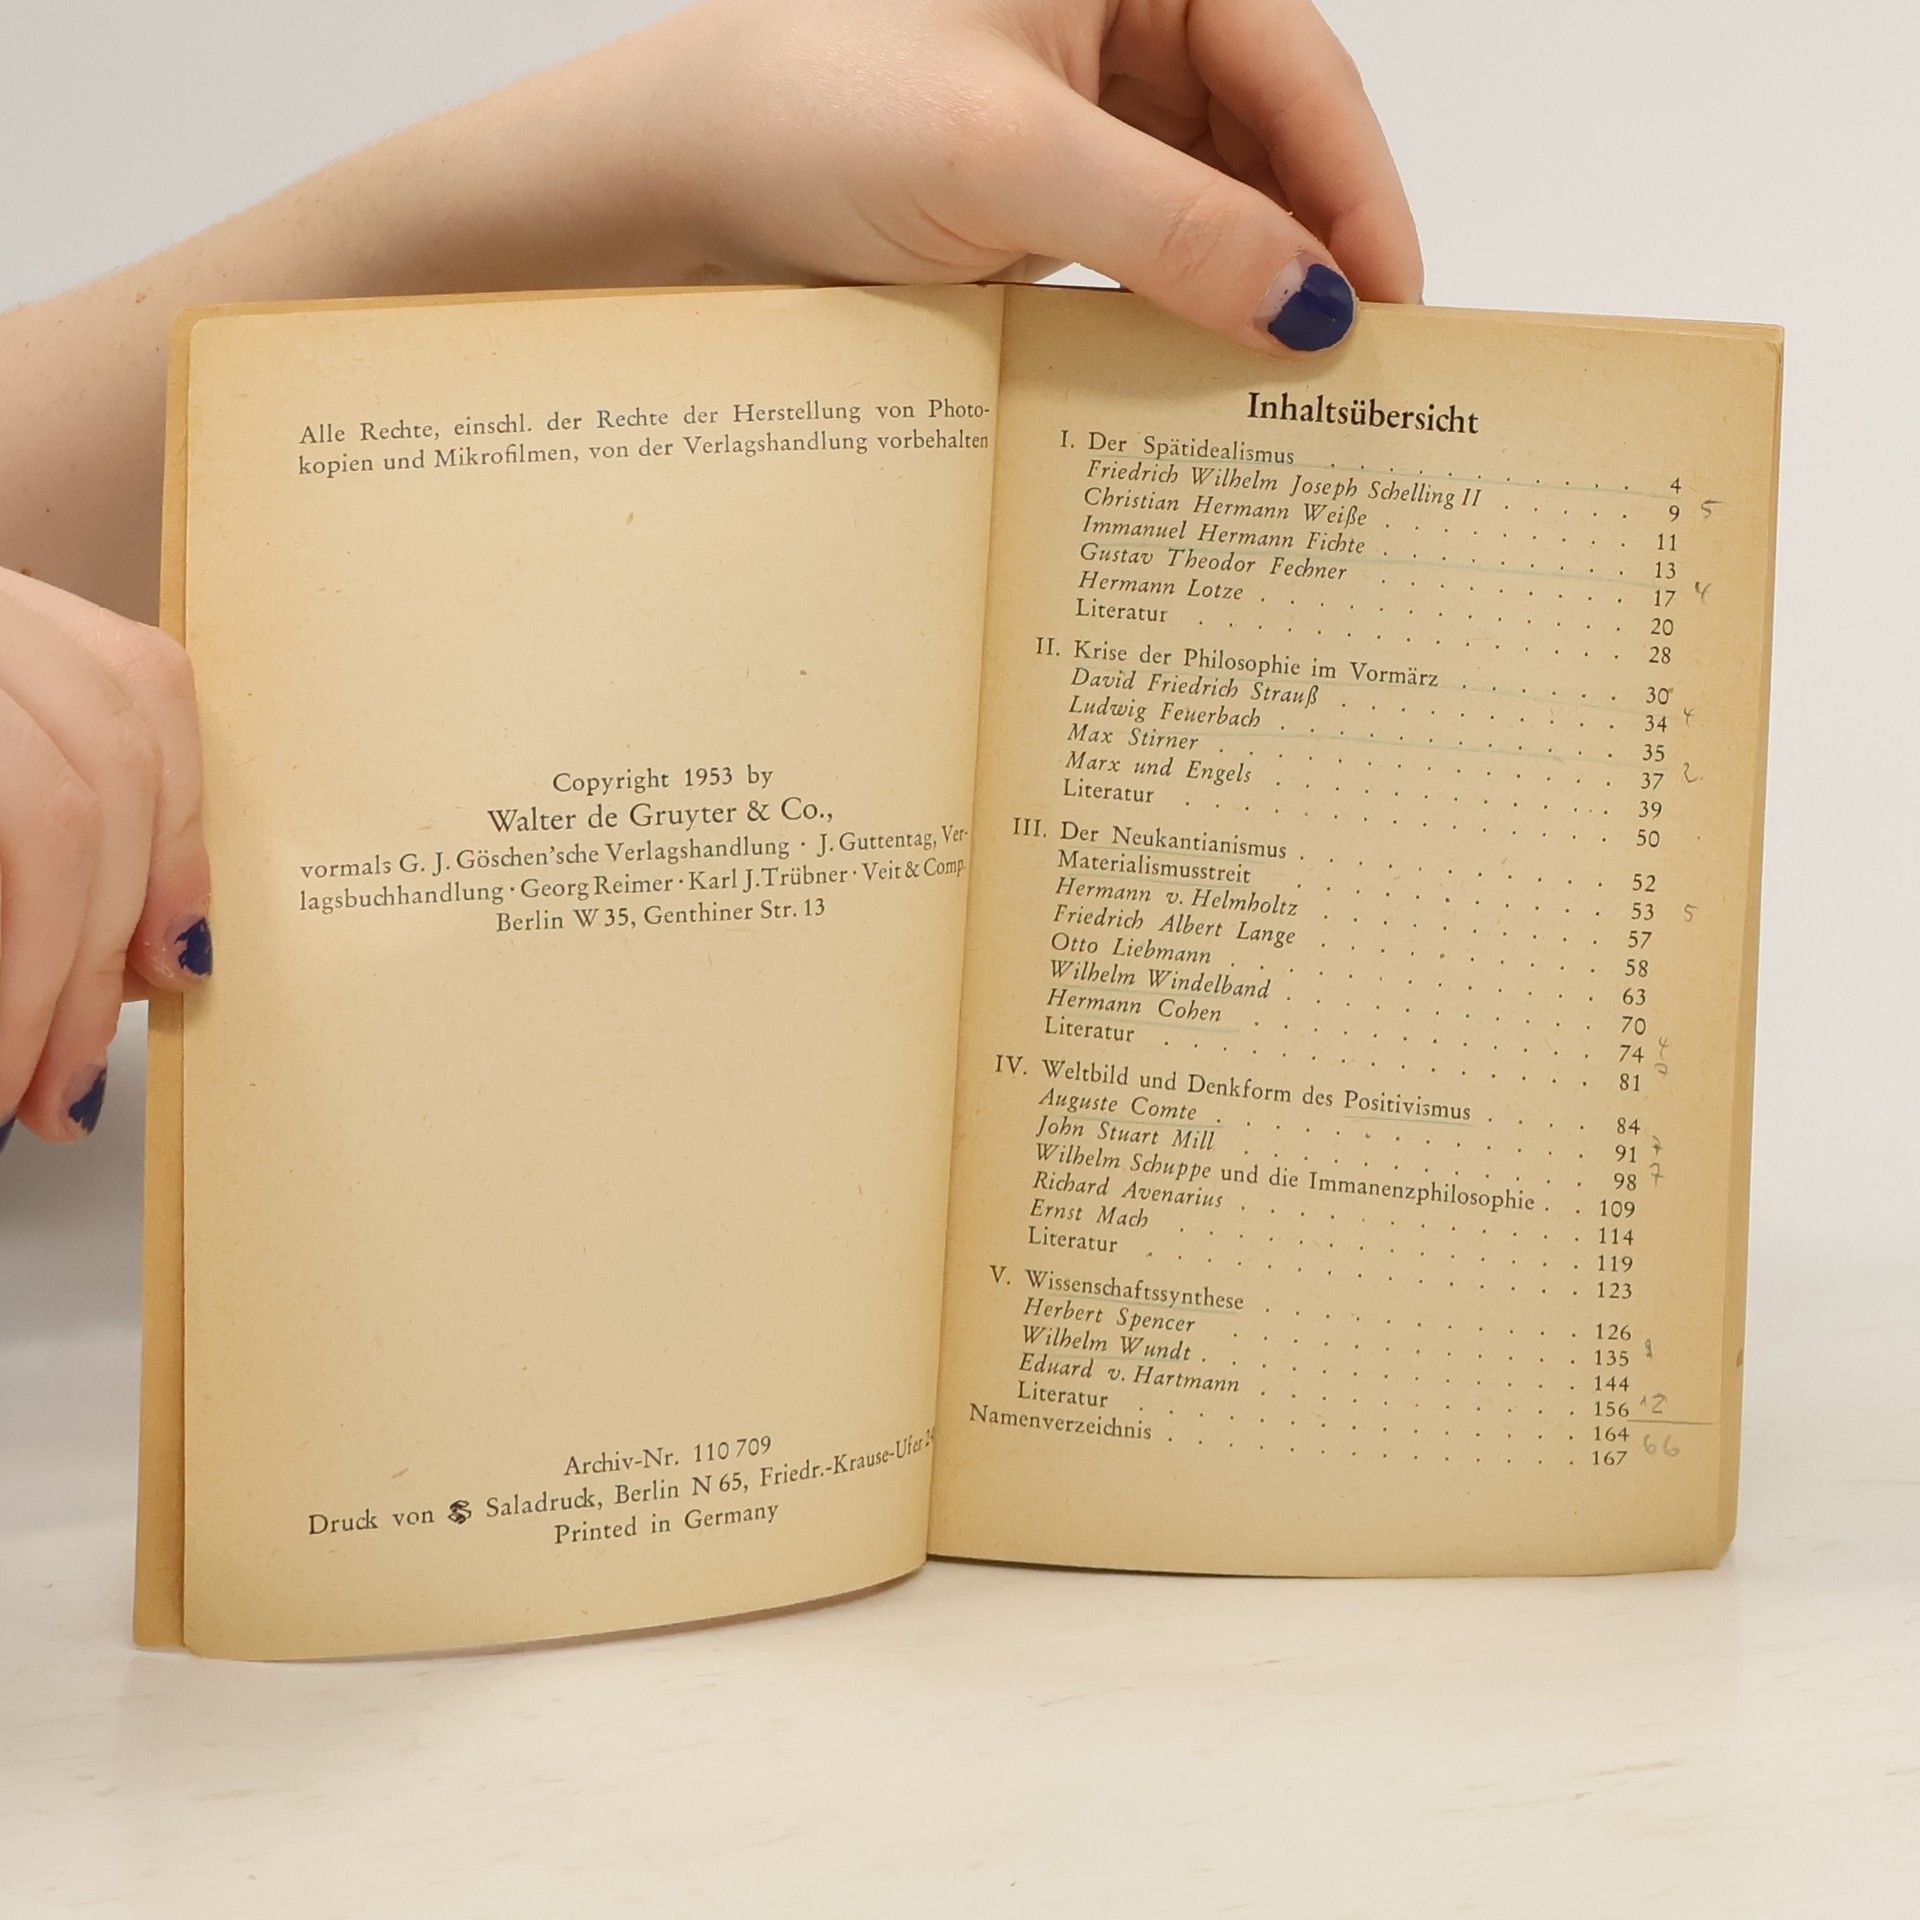 Alle Rechte, einschl. der Rechte der Herstellung von Photo-
kopien und Mikrofilmen, von der Verlagshandlung vorbehalten
Copyright 1953 by
Walter de Gruyter & Co.,
vormals G. J. Göschen'sche Verlagshandlung · J. Guttentag, Ver-
lagsbuchhandlung · Georg Reimer · Karl J. Trübner · Veit & Comp.
Berlin W 35, Genthiner Str. 13
Archiv-Nr. 110 709
Druck von Saladruck, Berlin N 65, Friedr.-Krause-Ufer 24
Printed in Germany
Inhaltsübersicht
I. Der Spätidealismus . . . . . . . . . . 4
Friedrich Wilhelm Joseph Schelling II . . . . . 9 5
Christian Hermann Weiße . . . . . . . . 11
Immanuel Hermann Fichte . . . . . . . . 13
Gustav Theodor Fechner . . . . . . . . 17 4
Hermann Lotze . . . . . . . . . . 20
Literatur . . . . . . . . . . . 28
II. Krise der Philosophie im Vormärz . . . . . . 30
David Friedrich Strauß . . . . . . . . . 34 4
Ludwig Feuerbach . . . . . . . . . . 35
Max Stirner . . . . . . . . . . . 37 2
Marx und Engels . . . . . . . . . . 39
Literatur . . . . . . . . . . . 50
III. Der Neukantianismus . . . . . . . . . 52
Materialismusstreit . . . . . . . . . 53 5
Hermann v. Helmholtz . . . . . . . . 57
Friedrich Albert Lange . . . . . . . . 58
Otto Liebmann . . . . . . . . . . 63
Wilhelm Windelband . . . . . . . . . 70
Hermann Cohen . . . . . . . . . . 74 4
Literatur . . . . . . . . . . . 81 7
IV. Weltbild und Denkform des Positivismus . . . . 84
Auguste Comte . . . . . . . . . . 91 7
John Stuart Mill . . . . . . . . . . 98 7
Wilhelm Schuppe und die Immanenzphilosophie . . 109
Richard Avenarius . . . . . . . . . . 114
Ernst Mach . . . . . . . . . . . 119
Literatur . . . . . . . . . . . 123
V. Wissenschaftssynthese . . . . . . . . . 126
Herbert Spencer . . . . . . . . . . 135
Wilhelm Wundt . . . . . . . . . . 144
Eduard v. Hartmann . . . . . . . . . 156 12
Literatur . . . . . . . . . . . 164
Namenverzeichnis . . . . . . . . . . 167 66